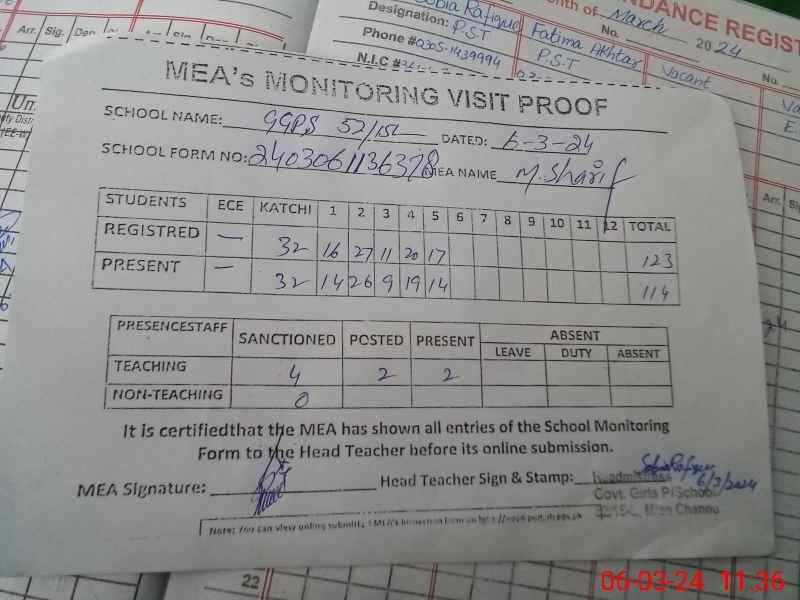 Arr. Sig. Dep. Sig. Arr. Sig. Dep.
Sobia Rafique
Designation: P.S.T
Phone # 0305-1439994
N.I.C #
Month of March 2024
No.
Fatima Akhtar
P.S.T
DANCE REGIST
Vacant
No.
Va
E.
MEA's MONITORING VISIT PROOF
SCHOOL NAME: GGPS 52/15L DATED: 6-3-24
SCHOOL FORM NO: 2403061136378 MEA NAME M.Sharif
STUDENTS ECE KATCHI 1 2 3 4 5 6 7 8 9 10 11 12 TOTAL
REGISTRED — 32 16 27 11 20 17 123
PRESENT — 32 14 26 9 19 14 114
PRESENCESTAFF SANCTIONED POSTED PRESENT ABSENT
LEAVE DUTY ABSENT
TEACHING 4 2 2
NON-TEACHING 0
It is certifiedthat the MEA has shown all entries of the School Monitoring
Form to the Head Teacher before its online submission.
MEA Signature: Head Teacher Sign & Stamp: Sobia Rafique
6/3/2024
Govt. Girls P/School
Mian Channu
Arr. Si
22
06-03-24 11:36